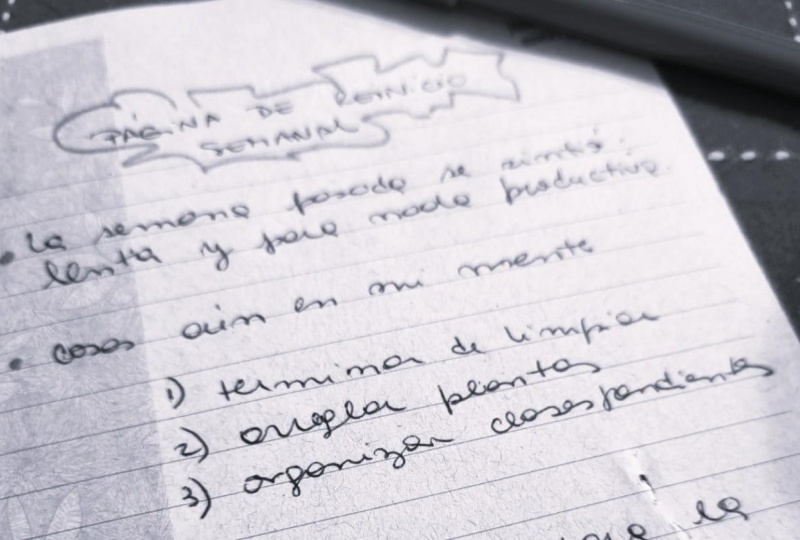 PÁGINA DE REINICIO
SEMANAL
• La semana pasada se sintió
lenta y para nada productiva.
• cosas aún en mi mente
1) terminar de limpiar
2) arreglar plantas
3) organizar clases pendientes
que la